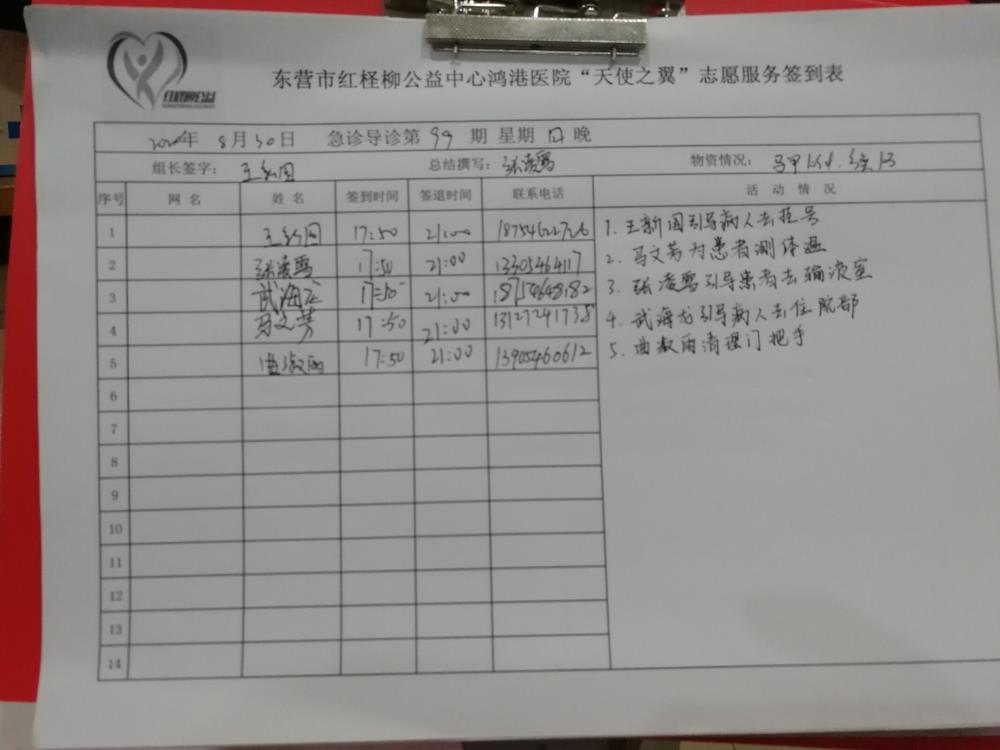 红柽柳公益
东营市红柽柳公益中心鸿港医院“天使之翼”志愿服务签到表
2020年 8月30日 急诊导诊第 99 期 星期 日 晚
组长签字: 王新国 总结撰写: 张凌雪 物资情况: 马甲
序号 网名 姓名 签到时间 签退时间 联系电话 活动情况
1 王新国 17:50 21:00 18754622726
2 张凌雪 17:50 21:00 13305464117
3 武海龙 17:50 21:00 18754648182
4 马文芳 17:50 21:00 13127241738
5 曲淑丽 17:50 21:00 13905460612
6
7
8
9
10
11
12
13
14
1. 王新国引导病人去挂号
2. 马文芳为患者测体温
3. 张凌雪引导患者去输液室
4. 武海龙引导病人去住院部
5. 曲淑丽清理门把手